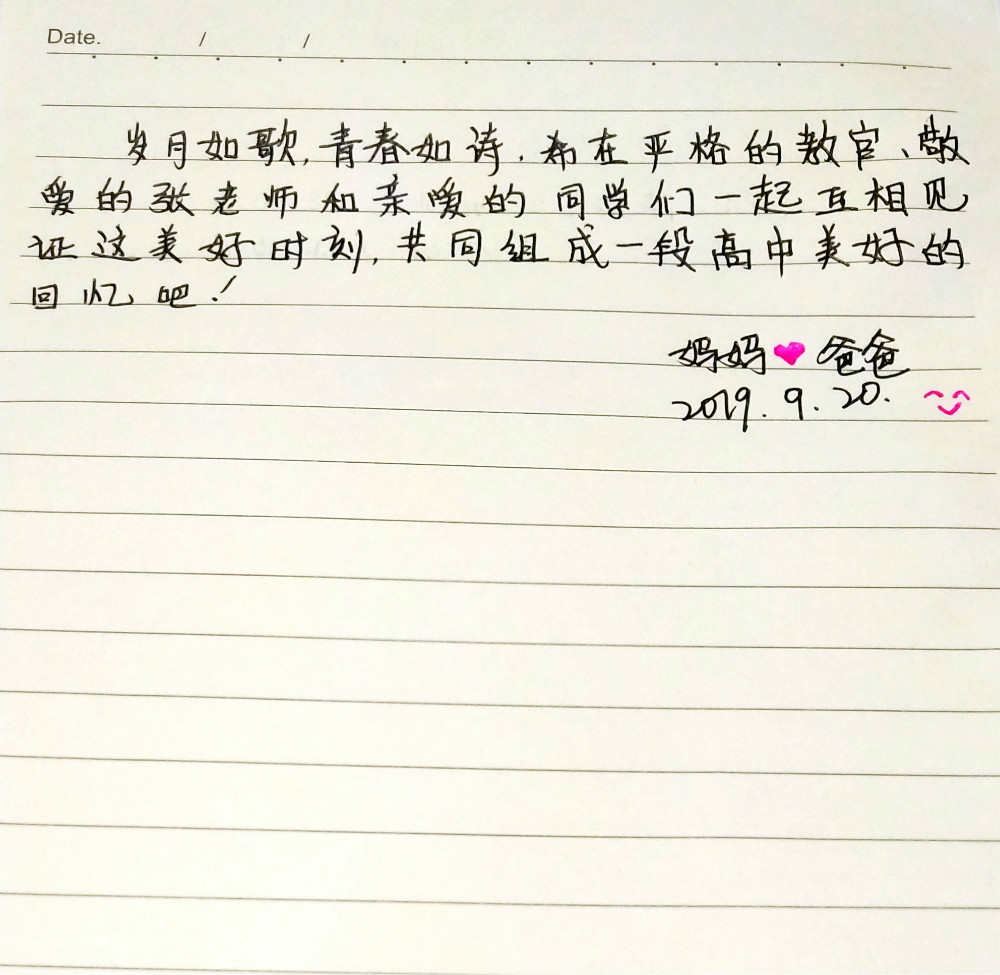 Date. / /
岁月如歌,青春如诗,希在严格的教官、敬
爱的张老师和亲爱的同学们一起互相见
证这美好时刻,共同组成一段高中美好的
回忆吧!
妈妈 爸爸
2019.9.20.